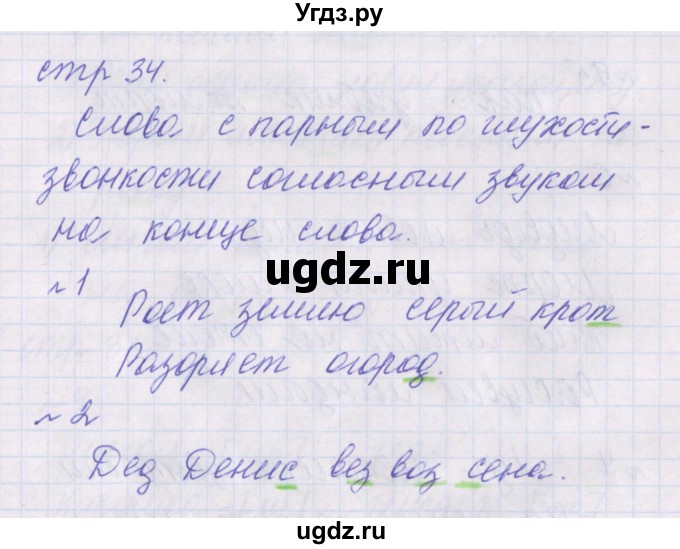 Угдз.ру
стр 34.
Слова с парным по глухости-
звонкости согласным звуком
на конце слова.
ugdz.ru
№1
Роет землю серый крот
Разоряет огород.
№2
Дед Денис вез воз сена.
ugdz.ru